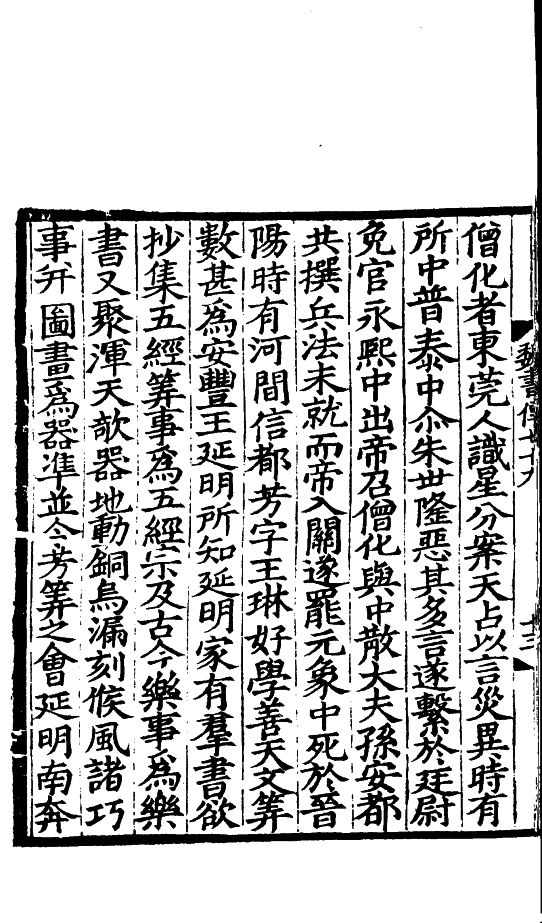 魏書傳七十九 十三
僧化者東莞人識星分案天占以言災異時有
所中普泰中尒朱世隆惡其多言遂繫於廷尉
免官永熙中出帝召僧化與中散大夫孫安都
共撰兵法未就而帝入關遂罷元象中死於晉
陽時有河間信都芳字王琳好學善天文筭
數甚爲安豐王延明所知延明家有羣書欲
抄集五經筭事爲五經宗及古今樂事爲樂
書又聚渾天欹器地動銅烏漏刻候風諸巧
事幷圖畫爲器準並令芳筭之會延明南奔